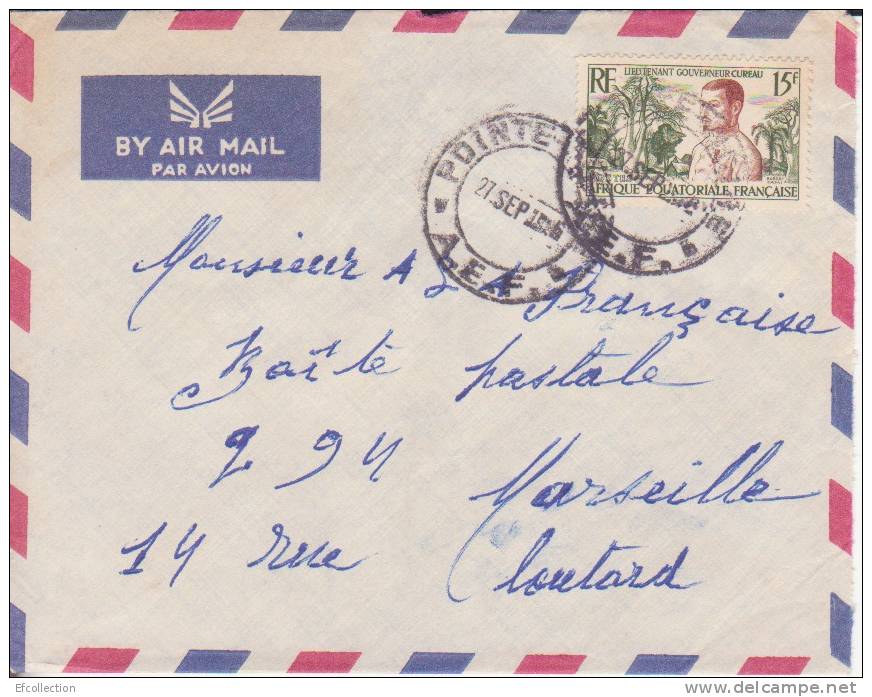 BY AIR MAIL
PAR AVION
LIEUTENANT GOUVERNEUR CUREAU
RF 15F
AFRIQUE ÉQUATORIALE FRANÇAISE
POINTE
27 SEP
A.E.F.
Monsieur A L A Française
Boîte postale
294 Marseille
14 rue loutard
Efcollection
delcampe.net